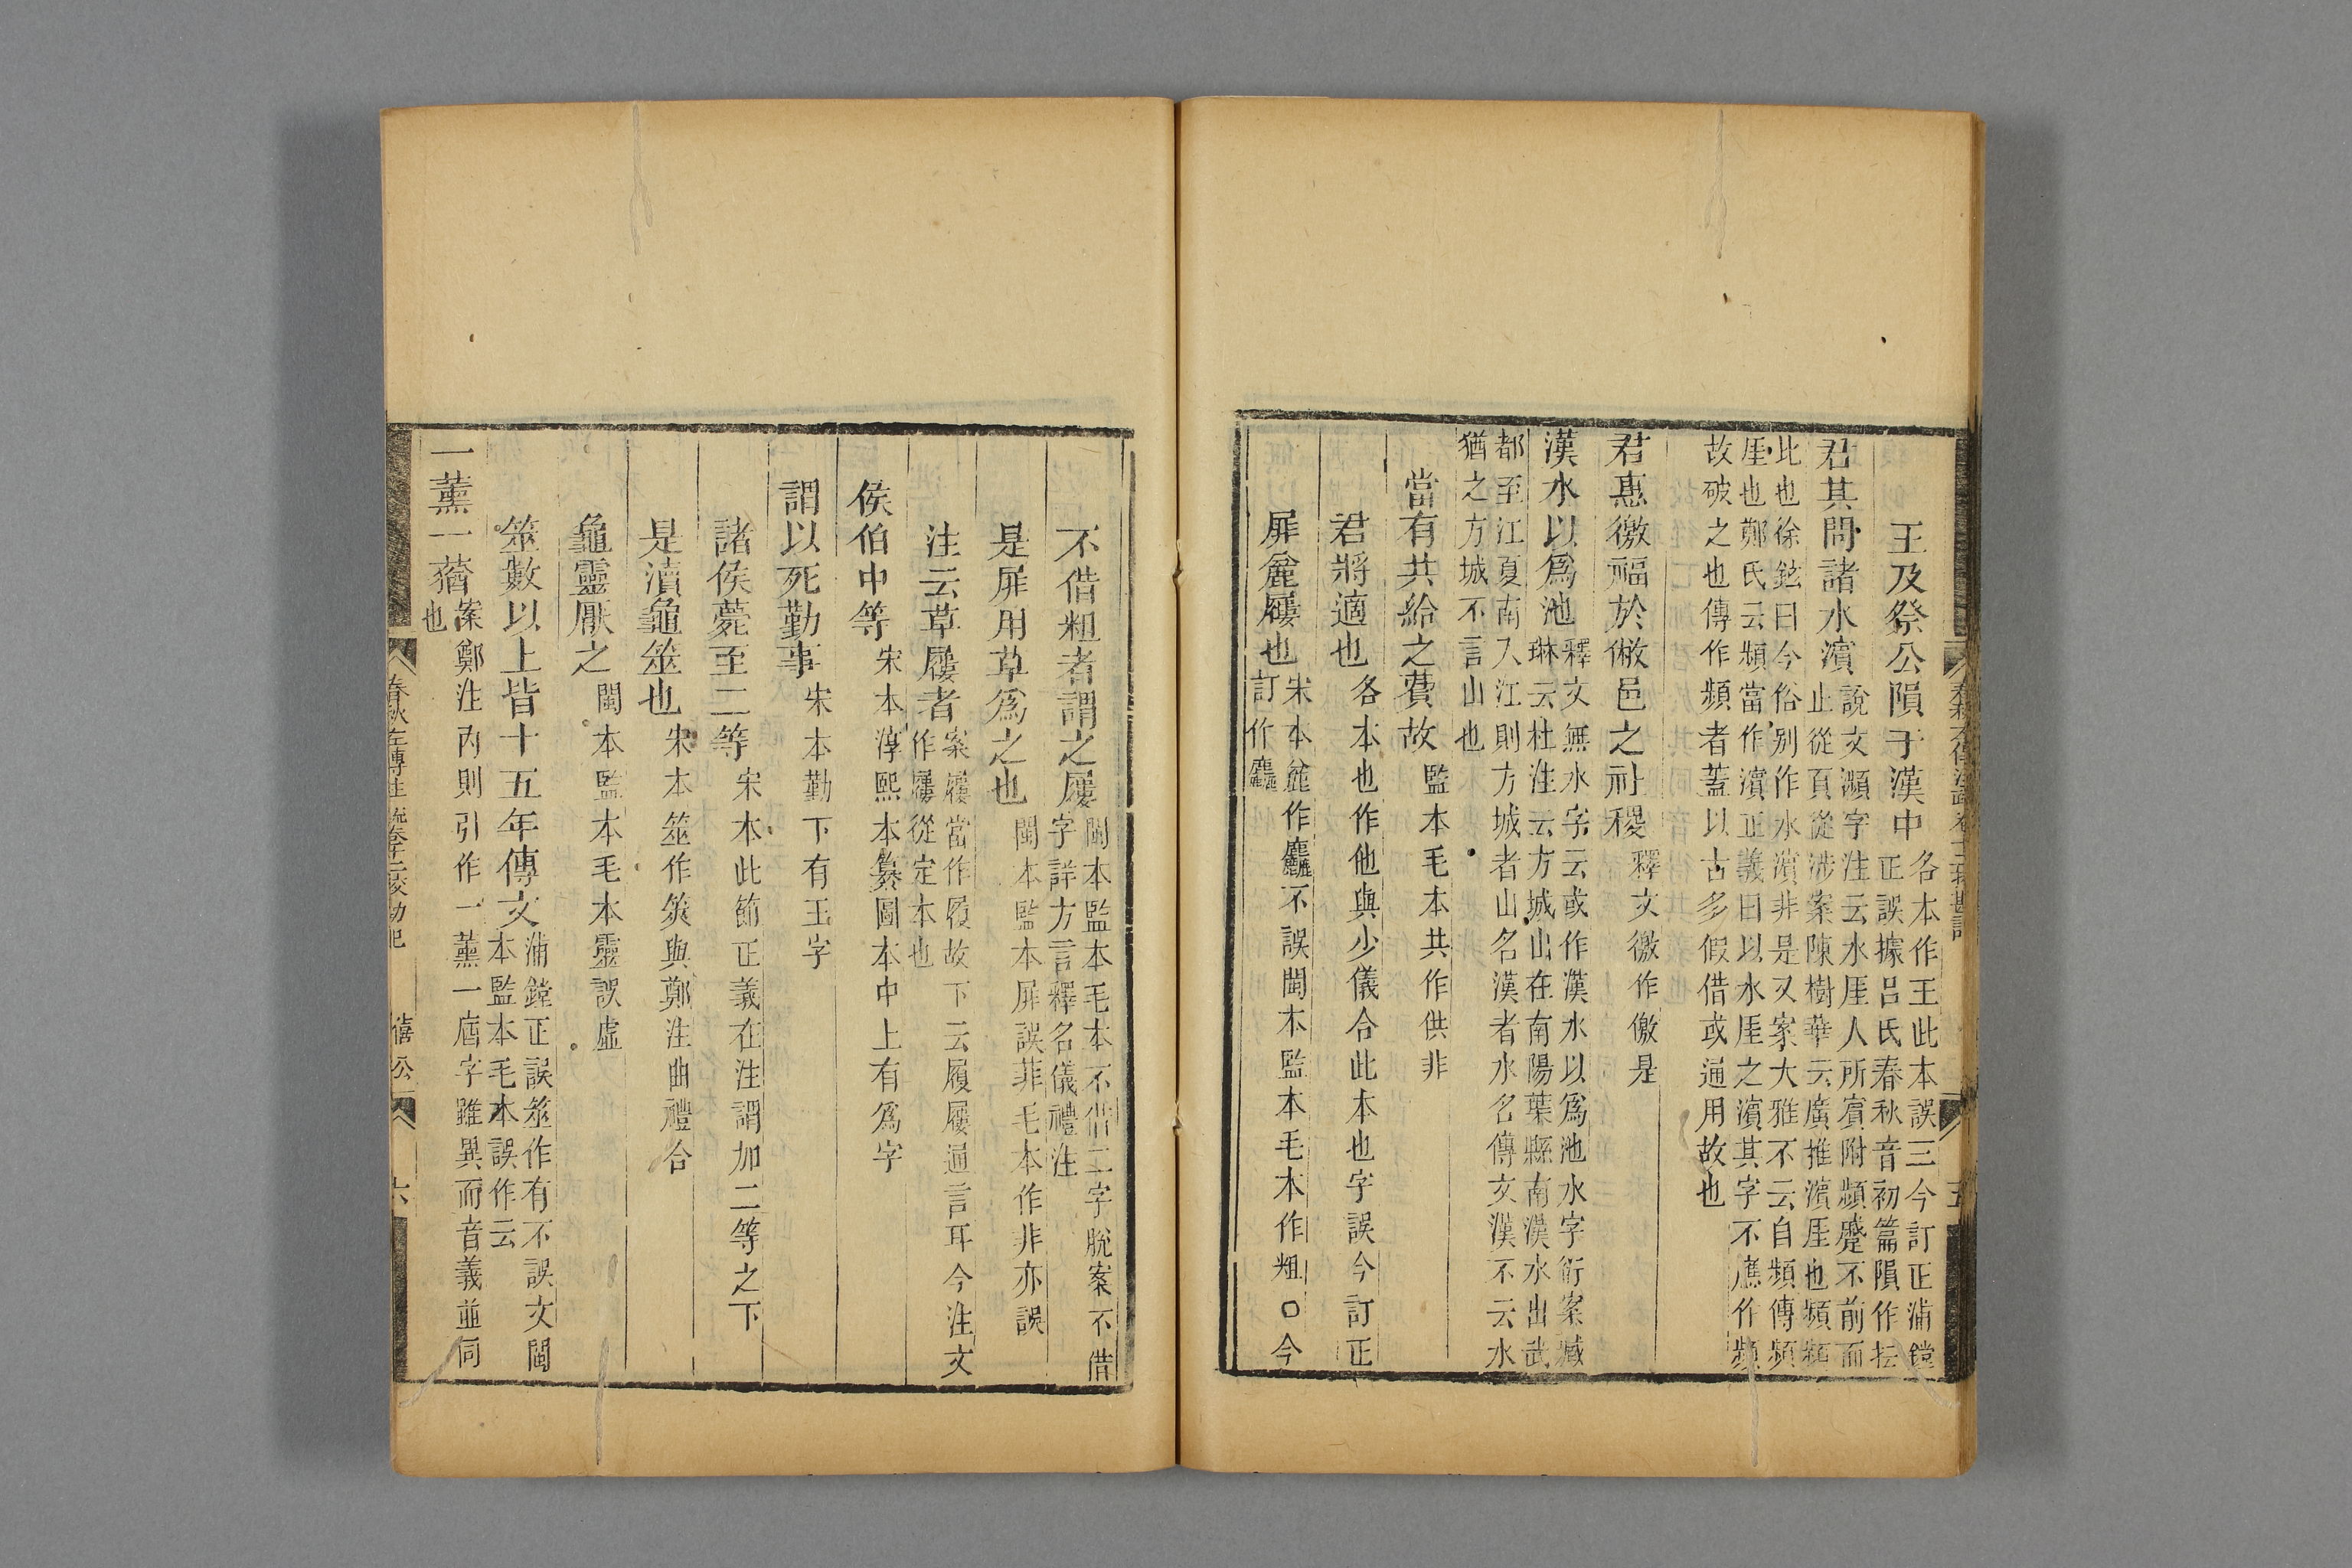 王及祭公隕于漢中
各本作王此本誤三今訂正浦鏜
正誤據呂氏春秋音初篇隕作抎
君其問諸水濱
說文瀕字注云水厓人所賓附頻蹙不前而
止從頁從涉案陳樹華云廣推濱厓也頻頻
比也徐鉉曰今俗別作水濱非是又案大雅不云自頻傳頻
厓也鄭氏云頻當作濱正義曰以水厓之濱其字不應作頻
故破之也傳作頻者蓋以古多假借或通用故也
君惠徼福於敝邑之社稷
釋文徼作儌是
漢水以爲池
釋文無水字云或作漢水以爲池水字衍案臧
琳云杜注云方城山在南陽葉縣南漢水出武
都至江夏南入江則方城者山名漢者水名傳文漢不云水
猶之方城不言山也
當有共給之費故
監本毛本共作供非
君將適也
各本也作他與少儀合此本也字誤今訂正
屝麄屨也
宋本麄作麤不誤閩本監本毛本作粗○今
訂作麤
不借粗者謂之屨
閩本監本毛本不借二字脫案不借
字詳方言釋名儀禮注
是屝用草爲之也
閩本監本屝誤菲毛本作非亦誤
注云草屨者
案屨當作履故下云履屨通言耳今注文
作屨從定本也
侯伯中等
宋本淳熙本纂圖本中上有爲字
謂以死勤事
宋本勤下有王字
諸侯薨至二等
宋本此節正義在注謂加二等之下
是瀆龜筮也
宋本筮作筴與鄭注曲禮合
龜靈厭之
閩本監本毛本靈誤虛
筮數以上皆十五年傳文
浦鏜正誤筮作有不誤文閩
本監本毛本誤作云
一薰一蕕
案鄭注內則引作一薰一庮字雖異而音義並同
也
春秋左傳注疏卷十二校勘記
僖公
六